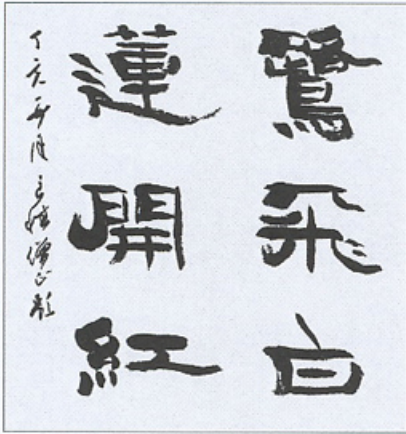 鷺飛白
蓮開紅
丁亥